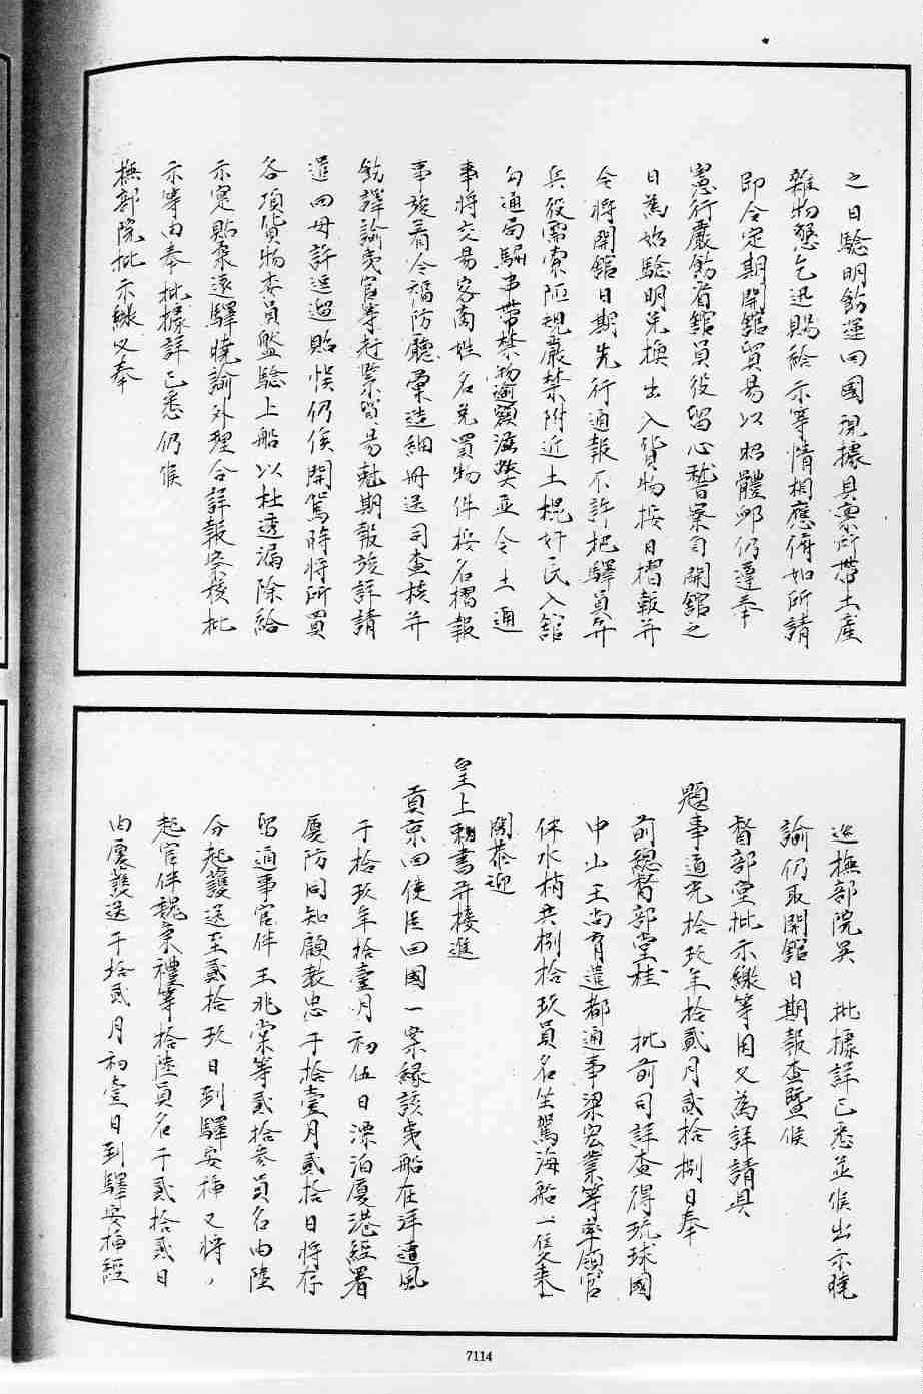 之日驗明飭運回國現據具稟所帶土產
雜物懇乞迅賜給示等情相應俯如所請
即令定期開舘貿易以昭體卹仍遵奉
憲行嚴飭省舘員役留心稽察自開舘之
日為始驗明兌換出入貨物按日摺報并
令將開舘日期先行通報不許把驛員弁
兵役需索陋規嚴禁附近土棍奸民入舘
勾通局騙串帶禁物逾額滋獘並令土通
事將交易客商姓名兌買物件按名摺報
事竣看令福防廳彙造細冊送司查核并
飭譯諭夷官等赶緊貿易尅期報竣詳請
遣回毋許逗遛貽悞仍俟開駕時將所買
各項貨物委員盤驗上船以杜透漏除給
示寔貼柔遠驛曉諭外理合詳報察核批
示等由奉批據詳已悉仍候
撫部院批示繳又奉
巡撫部院吳 批據詳已悉並候出示曉
諭仍取開舘日期報查暨候
督部堂批示繳等因又為詳請具
題事道光拾玖年拾貳月貳拾捌日奉
前總督部堂桂 批前司詳查得琉球國
中山王尚育遣都通事梁宏業等率領官
伴水梢共捌拾玖員名坐駕海船一隻來
閩恭迎
皇上勅書并接進
貢京回使臣回國一案緣該夷船在洋遭風
于拾玖年拾壹月初伍日漂泊厦港經署
厦防同知顧教忠于拾壹月貳拾日將存
留通事官伴王兆棠等貳拾叁員名由陸
分起護送至貳拾玖日到驛安插又將
起官伴魏秉禮等拾陸員名于貳拾貳日
由厦護送于拾貳月初壹日到驛安插經
7114